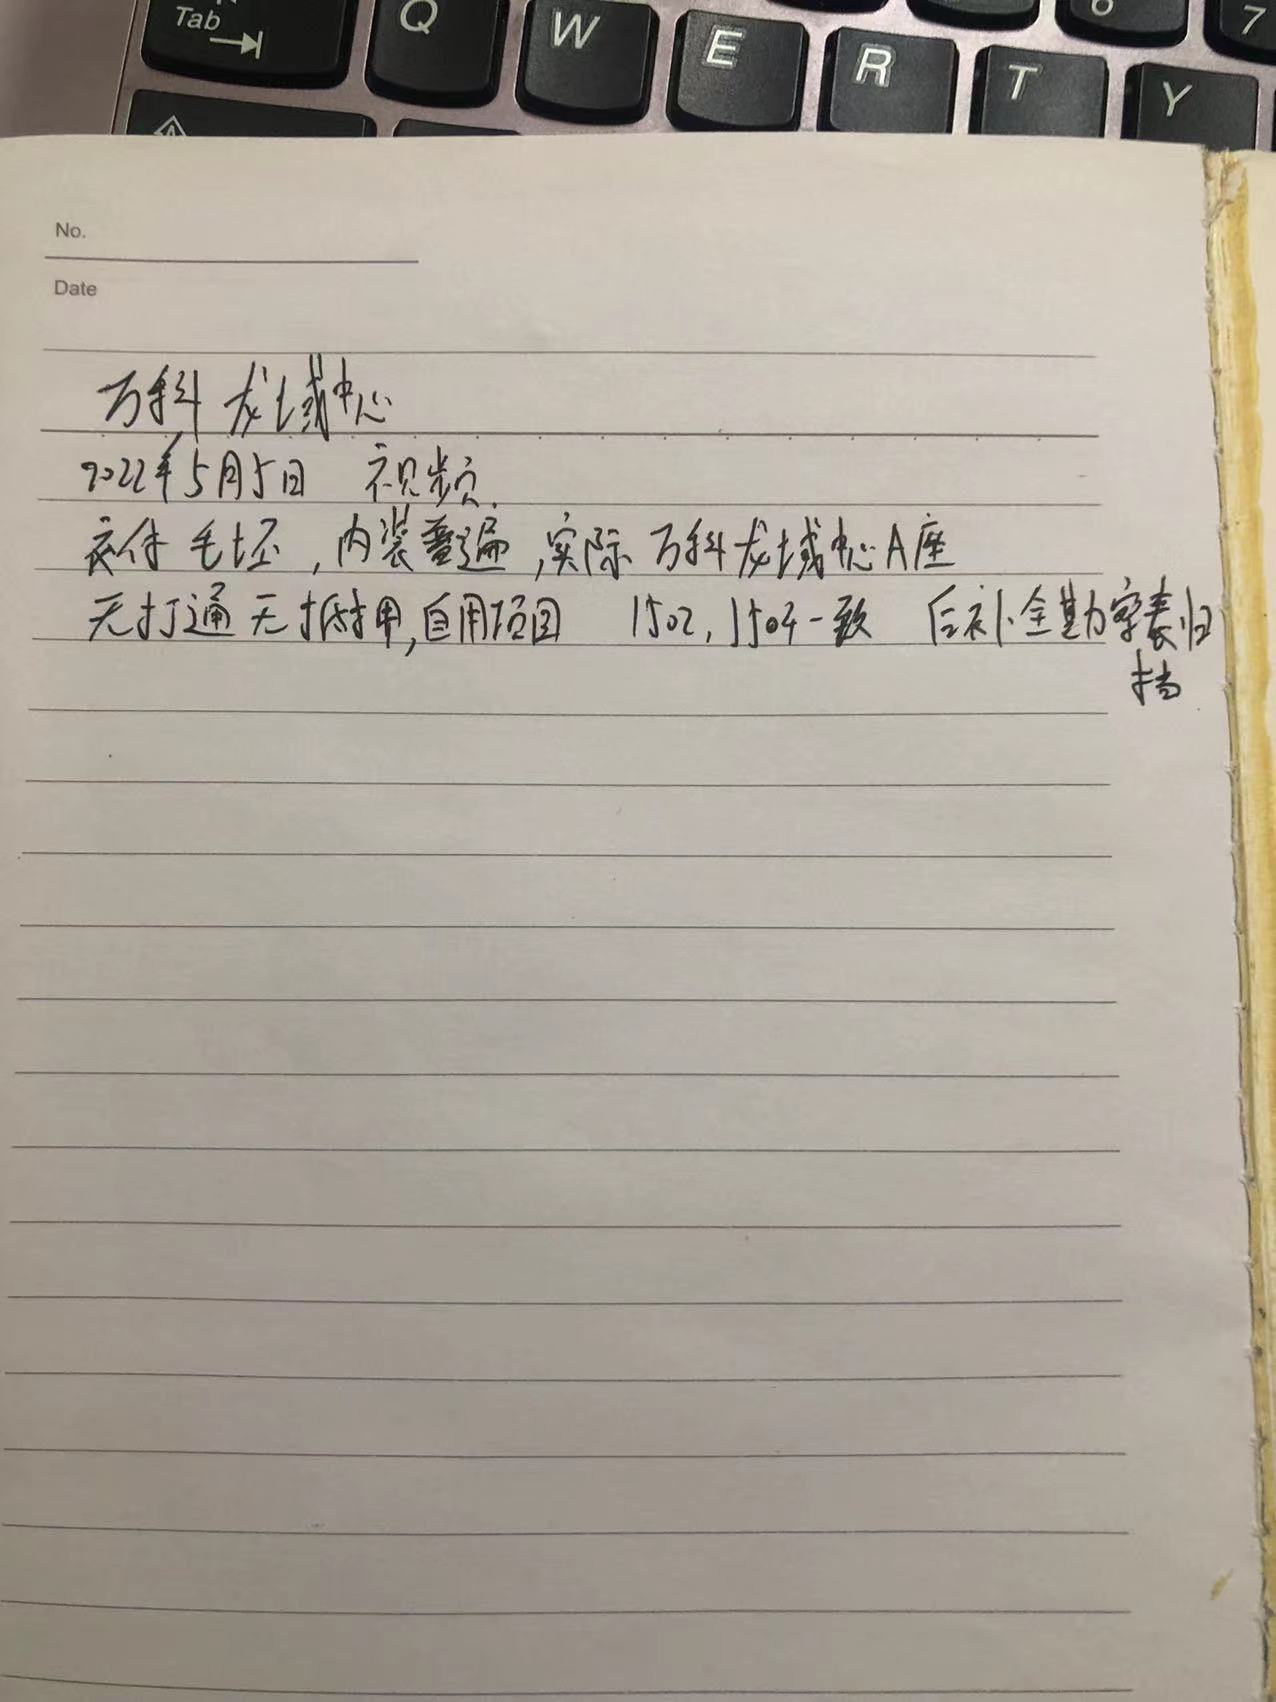 Tab
Q W E R T Y 6 7
No.
Date
万科龙域中心
2022年5月5日 视频
交付毛坯,内装普遍,实际万科龙域中心A座
无打通无抵押,自用项目 1502,1504一致 后补全勘字表归
档